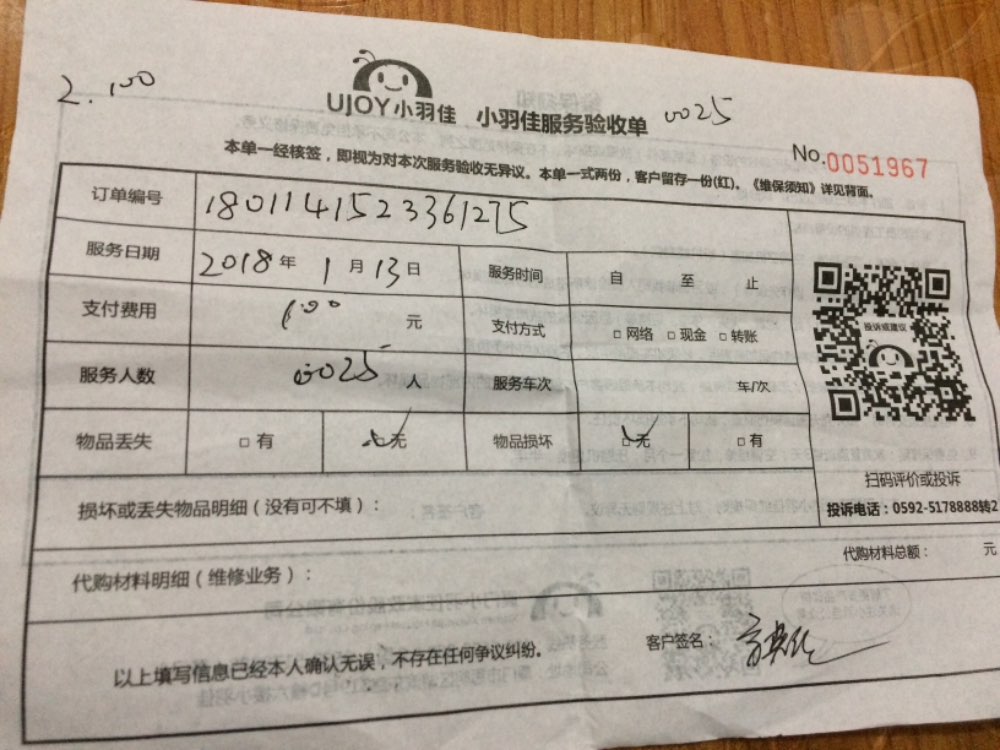 2.100
UJOY小羽佳 小羽佳服务验收单 0025
No.0051967
本单一经核签，即视为对本次服务验收无异议。本单一式两份，客户留存一份(红)。《维保须知》详见背面。
订单编号 18011415233361275
服务日期 2018年1月13日 服务时间 自 至 止
支付费用 100 元 支付方式 □网络 □现金 □转账
投诉或建议
服务人数 0025 人 服务车次 车/次
物品丢失 □有 ☑无 物品损坏 ☑无 □有
扫码评价或投诉
投诉电话：0592-5178888转2
损坏或丢失物品明细（没有可不填）：
代购材料总额： 元
代购材料明细（维修业务）：
客户签名：
以上填写信息已经本人确认无误，不存在任何争议纠纷。